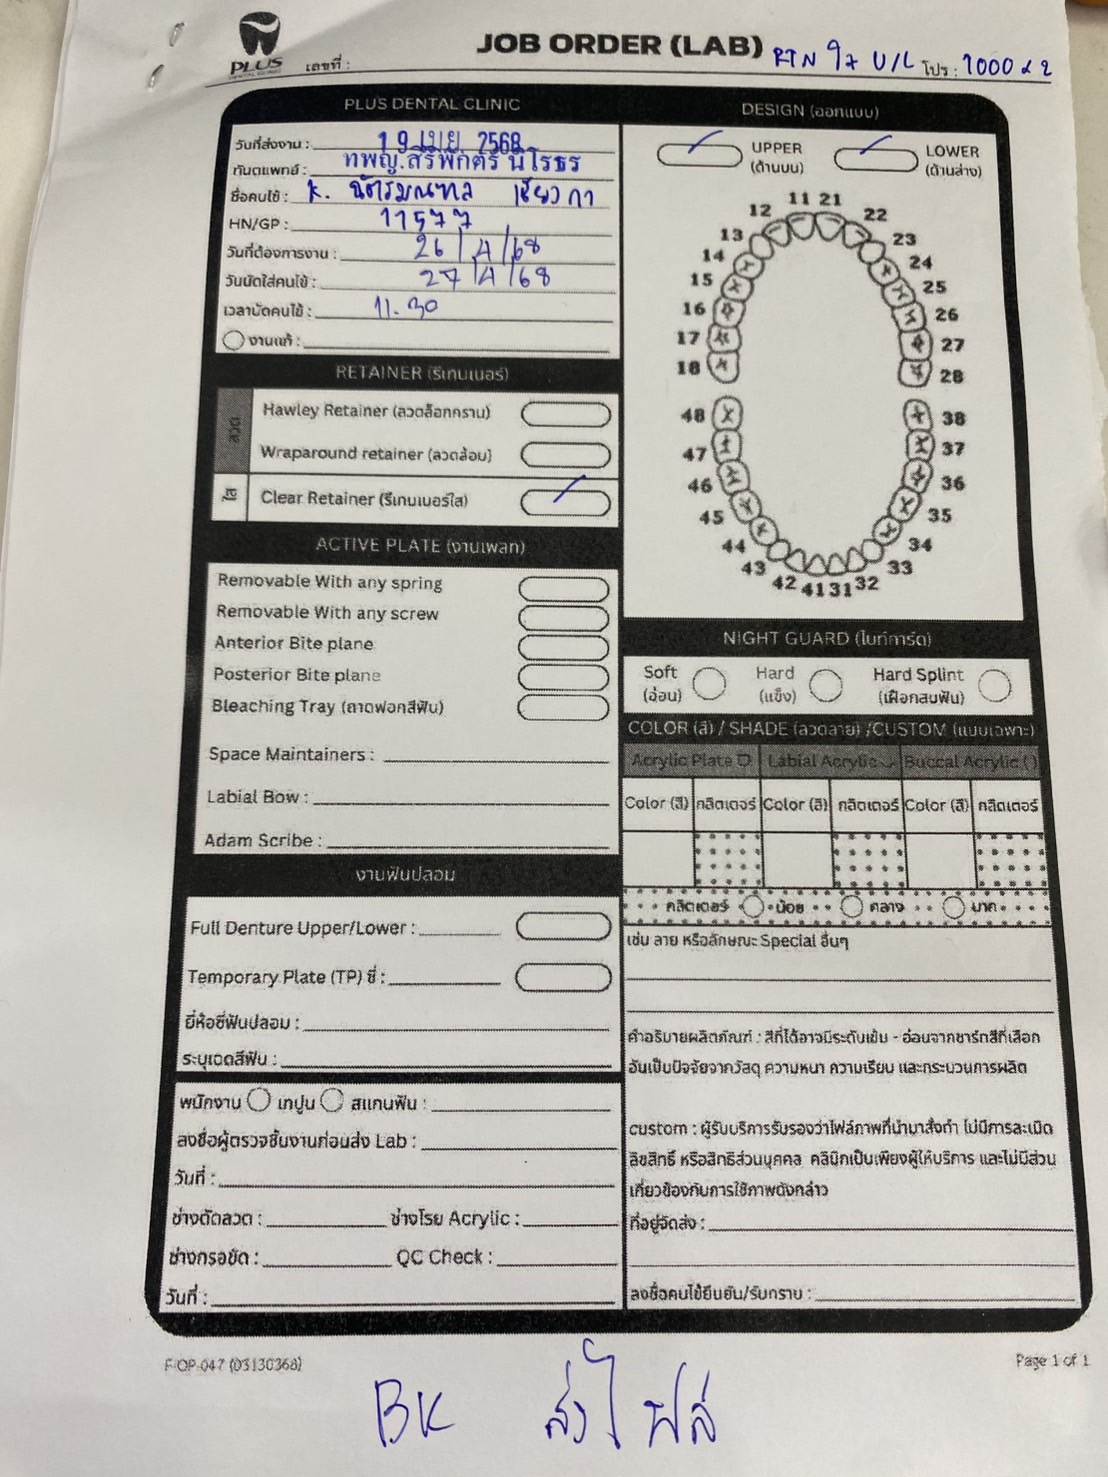 PLUS
DENTAL CLINIC
เลขที่ :
JOB ORDER (LAB)
RTN ใส U/L โปร : 1000 x 2
PLUS DENTAL CLINIC
วันที่ส่งงาน : 19 เม.ย. 2568
ทันตแพทย์ : ทพญ.สิริพักตร์ นิโรธร
ชื่อคนไข้ : K. ฉัตรมณฑล เชียงกา
HN/GP : 11577
วันที่ต้องการงาน : 26/4/68
วันนัดใส่คนไข้ : 27/4/68
เวลานัดคนไข้ : 11.30
งานแก้ :
RETAINER (รีเทนเนอร์)
ลวด
Hawley Retainer (ลวดล็อกกราม)
Wraparound retainer (ลวดล้อม)
ใส
Clear Retainer (รีเทนเนอร์ใส)
ACTIVE PLATE (งานเพลท)
Removable With any spring
Removable With any screw
Anterior Bite plane
Posterior Bite plane
Bleaching Tray (ถาดฟอกสีฟัน)
Space Maintainers :
Labial Bow :
Adam Scribe :
งานฟันปลอม
Full Denture Upper/Lower :
Temporary Plate (TP) ซี่ :
ยี่ห้อซี่ฟันปลอม :
ระบุเฉดสีฟัน :
พนักงาน เทปูน สแกนฟัน :
ลงชื่อผู้ตรวจชิ้นงานก่อนส่ง Lab :
วันที่ :
ช่างดัดลวด : ช่างโรย Acrylic :
ช่างกรอขัด : QC Check :
วันที่ :
DESIGN (ออกแบบ)
UPPER (ด้านบน)
LOWER (ด้านล่าง)
11 21
12 22
13 23
14 24
15 25
16 26
17 27
18 28
48 38
47 37
46 36
45 35
44 34
43 33
42 41 31 32
NIGHT GUARD (ไนท์การ์ด)
Soft Hard Hard Splint
(อ่อน) (แข็ง) (เฝือกสบฟัน)
COLOR (สี) / SHADE (ลวดลาย) /CUSTOM (แบบเฉพาะ)
Acrylic Plate Labial Acrylic Buccal Acrylic ( )
Color (สี) กลิตเตอร์ Color (สี) กลิตเตอร์ Color (สี) กลิตเตอร์
กลิตเตอร์ น้อย กลาง มาก
เช่น ลาย หรือลักษณะ Special อื่นๆ
คำอธิบายผลิตภัณฑ์ : สีที่ได้อาจมีระดับเข้ม - อ่อนจากชาร์ทสีที่เลือก
อันเป็นปัจจัยจากวัสดุ ความหนา ความเรียบ และกระบวนการผลิต
custom : ผู้รับบริการรับรองว่าไฟล์ภาพที่นำมาสั่งทำ ไม่มีการละเมิด
ลิขสิทธิ์ หรือสิทธิส่วนบุคคล คลินิกเป็นเพียงผู้ให้บริการ และไม่มีส่วน
เกี่ยวข้องกับการใช้ภาพดังกล่าว
ที่อยู่จัดส่ง :
ลงชื่อคนไข้ยืนยัน/รับทราบ :
F-OP-047 (03130368)
Page 1 of 1
BK ส่งไฟล์